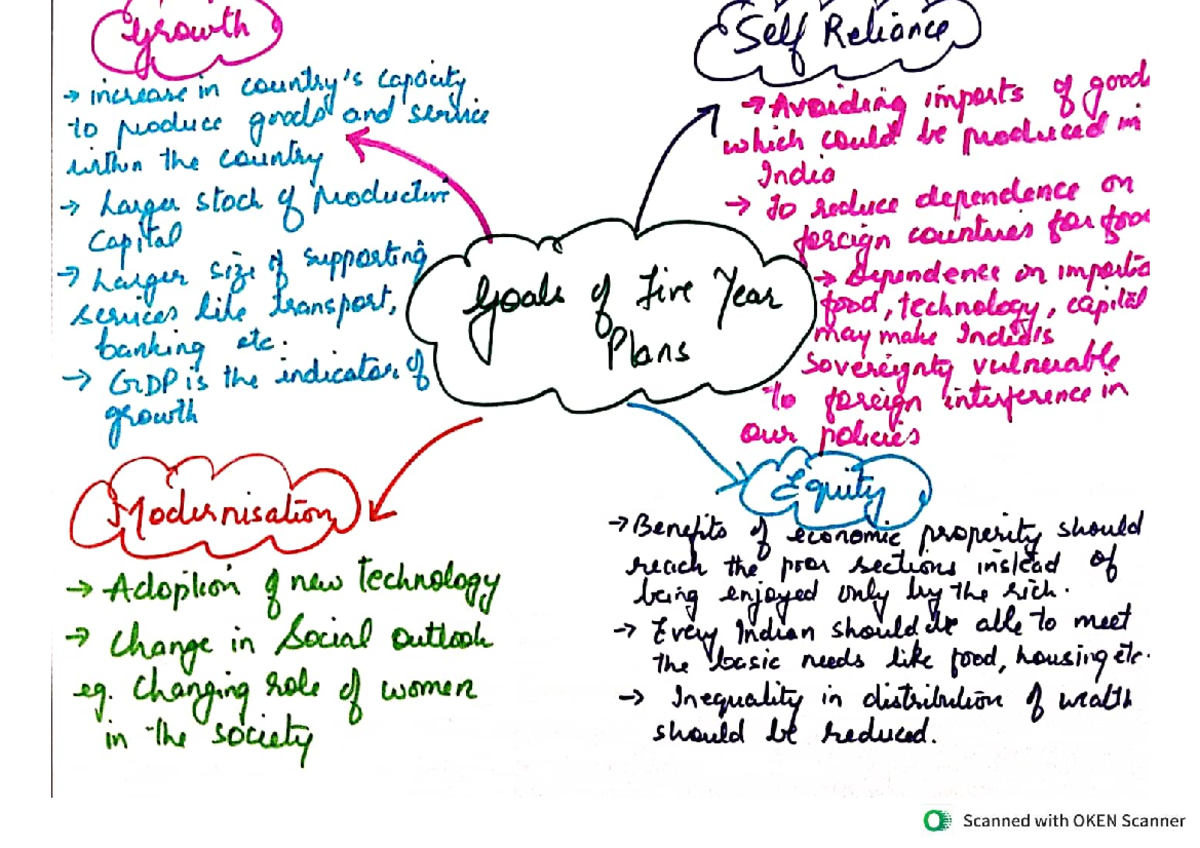 Growth
→ increase in country's capacity
to produce goods and service
within the country
→ Larger stock of productive
Capital
→ Larger size of supporting
services like transport,
banking etc.
→ GDP is the indicator of
growth
Self Reliance
→ Avoiding imports of good
which could be produced in
India
→ To reduce dependence on
foreign countries for foo
→ Dependence on importe
food, technology, capital
may make India's
sovereignty vulnerable
to foreign interference in
our policies
Goals of Five Year
Plans
Modernisation
→ Adoption of new technology
→ Change in Social outlook
eg. Changing role of women
in the society
Equity
→ Benefits of economic properity should
reach the poor sections instead of
being enjoyed only by the rich.
→ Every Indian should be able to meet
the basic needs like food, housing etc.
→ Inequality in distribution of wealth
should be reduced.
Scanned with OKEN Scanner